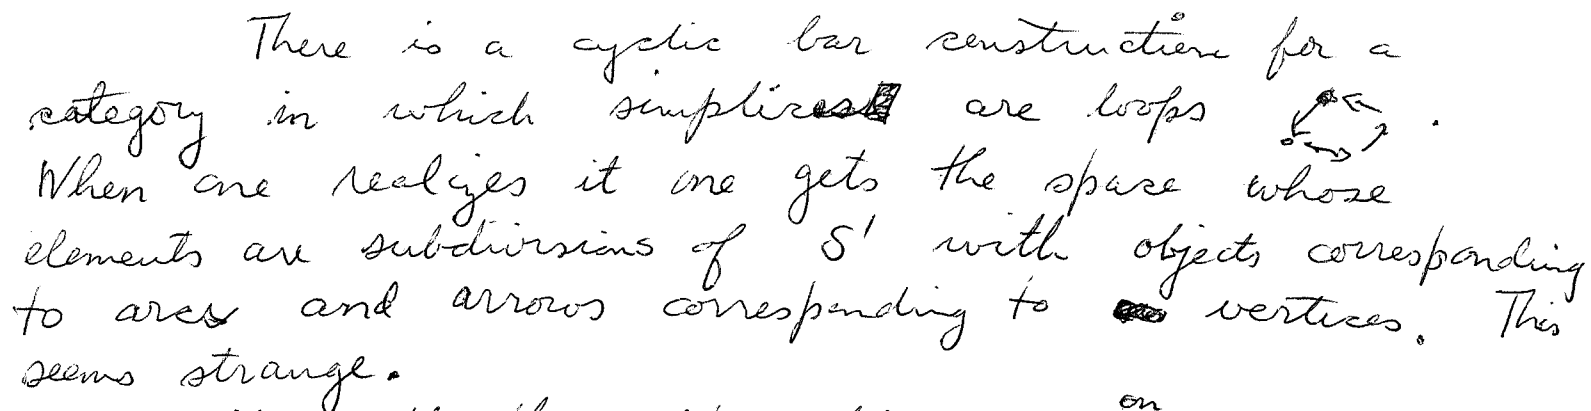 There is a cyclic bar construction for a
category in which simplices are loops .
When one realizes it one gets the space whose
elements are subdivisions of S¹ with objects corresponding
to arcs and arrows corresponding to vertices. This
seems strange.
on